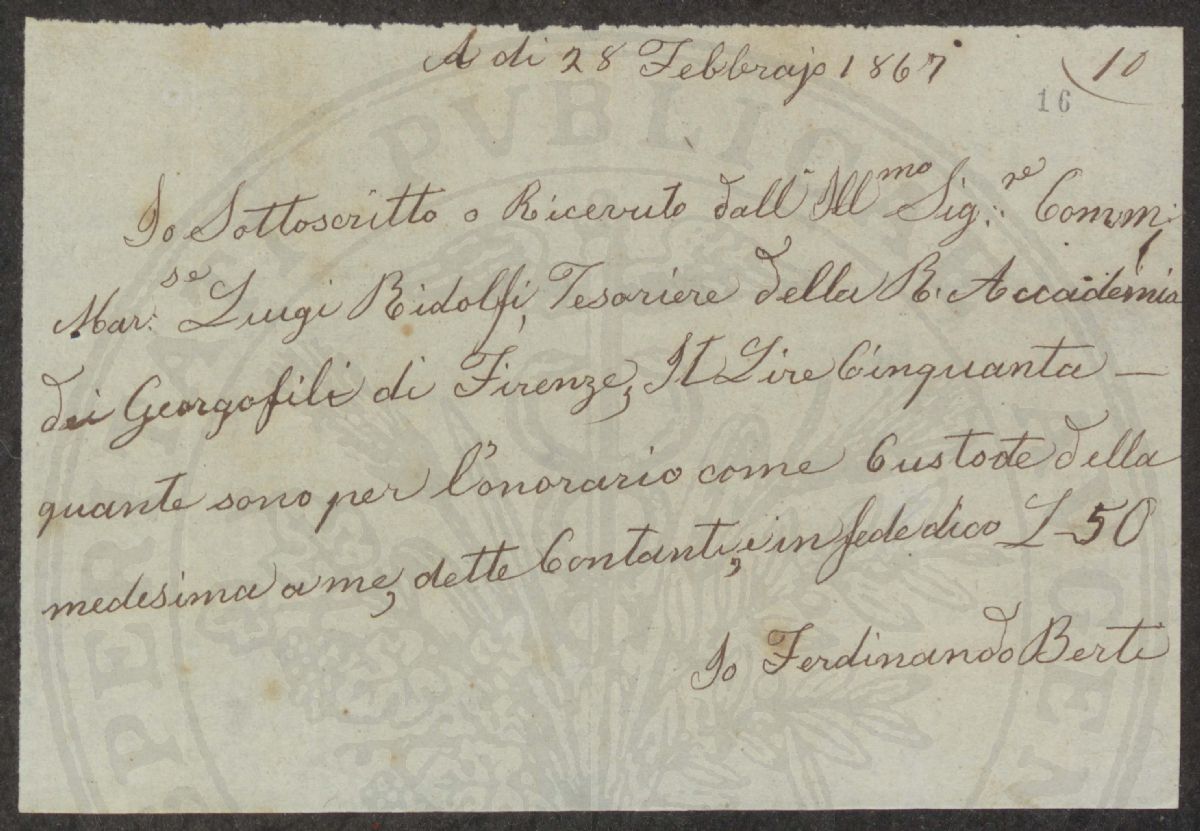 A di 28 Febbrajo 1867
10
16
Io Sottoscritto o Ricevuto dall' Ill.mo Sig.re Comm:
Mar.se Luigi Ridolfi, Tesoriere della R. Accademia
dei Georgofili di Firenze, It Lire Cinquanta —
quante sono per l'onorario come Custode della
medesima a me, dette Contanti, in fede dico L 50
Io Ferdinando Berti